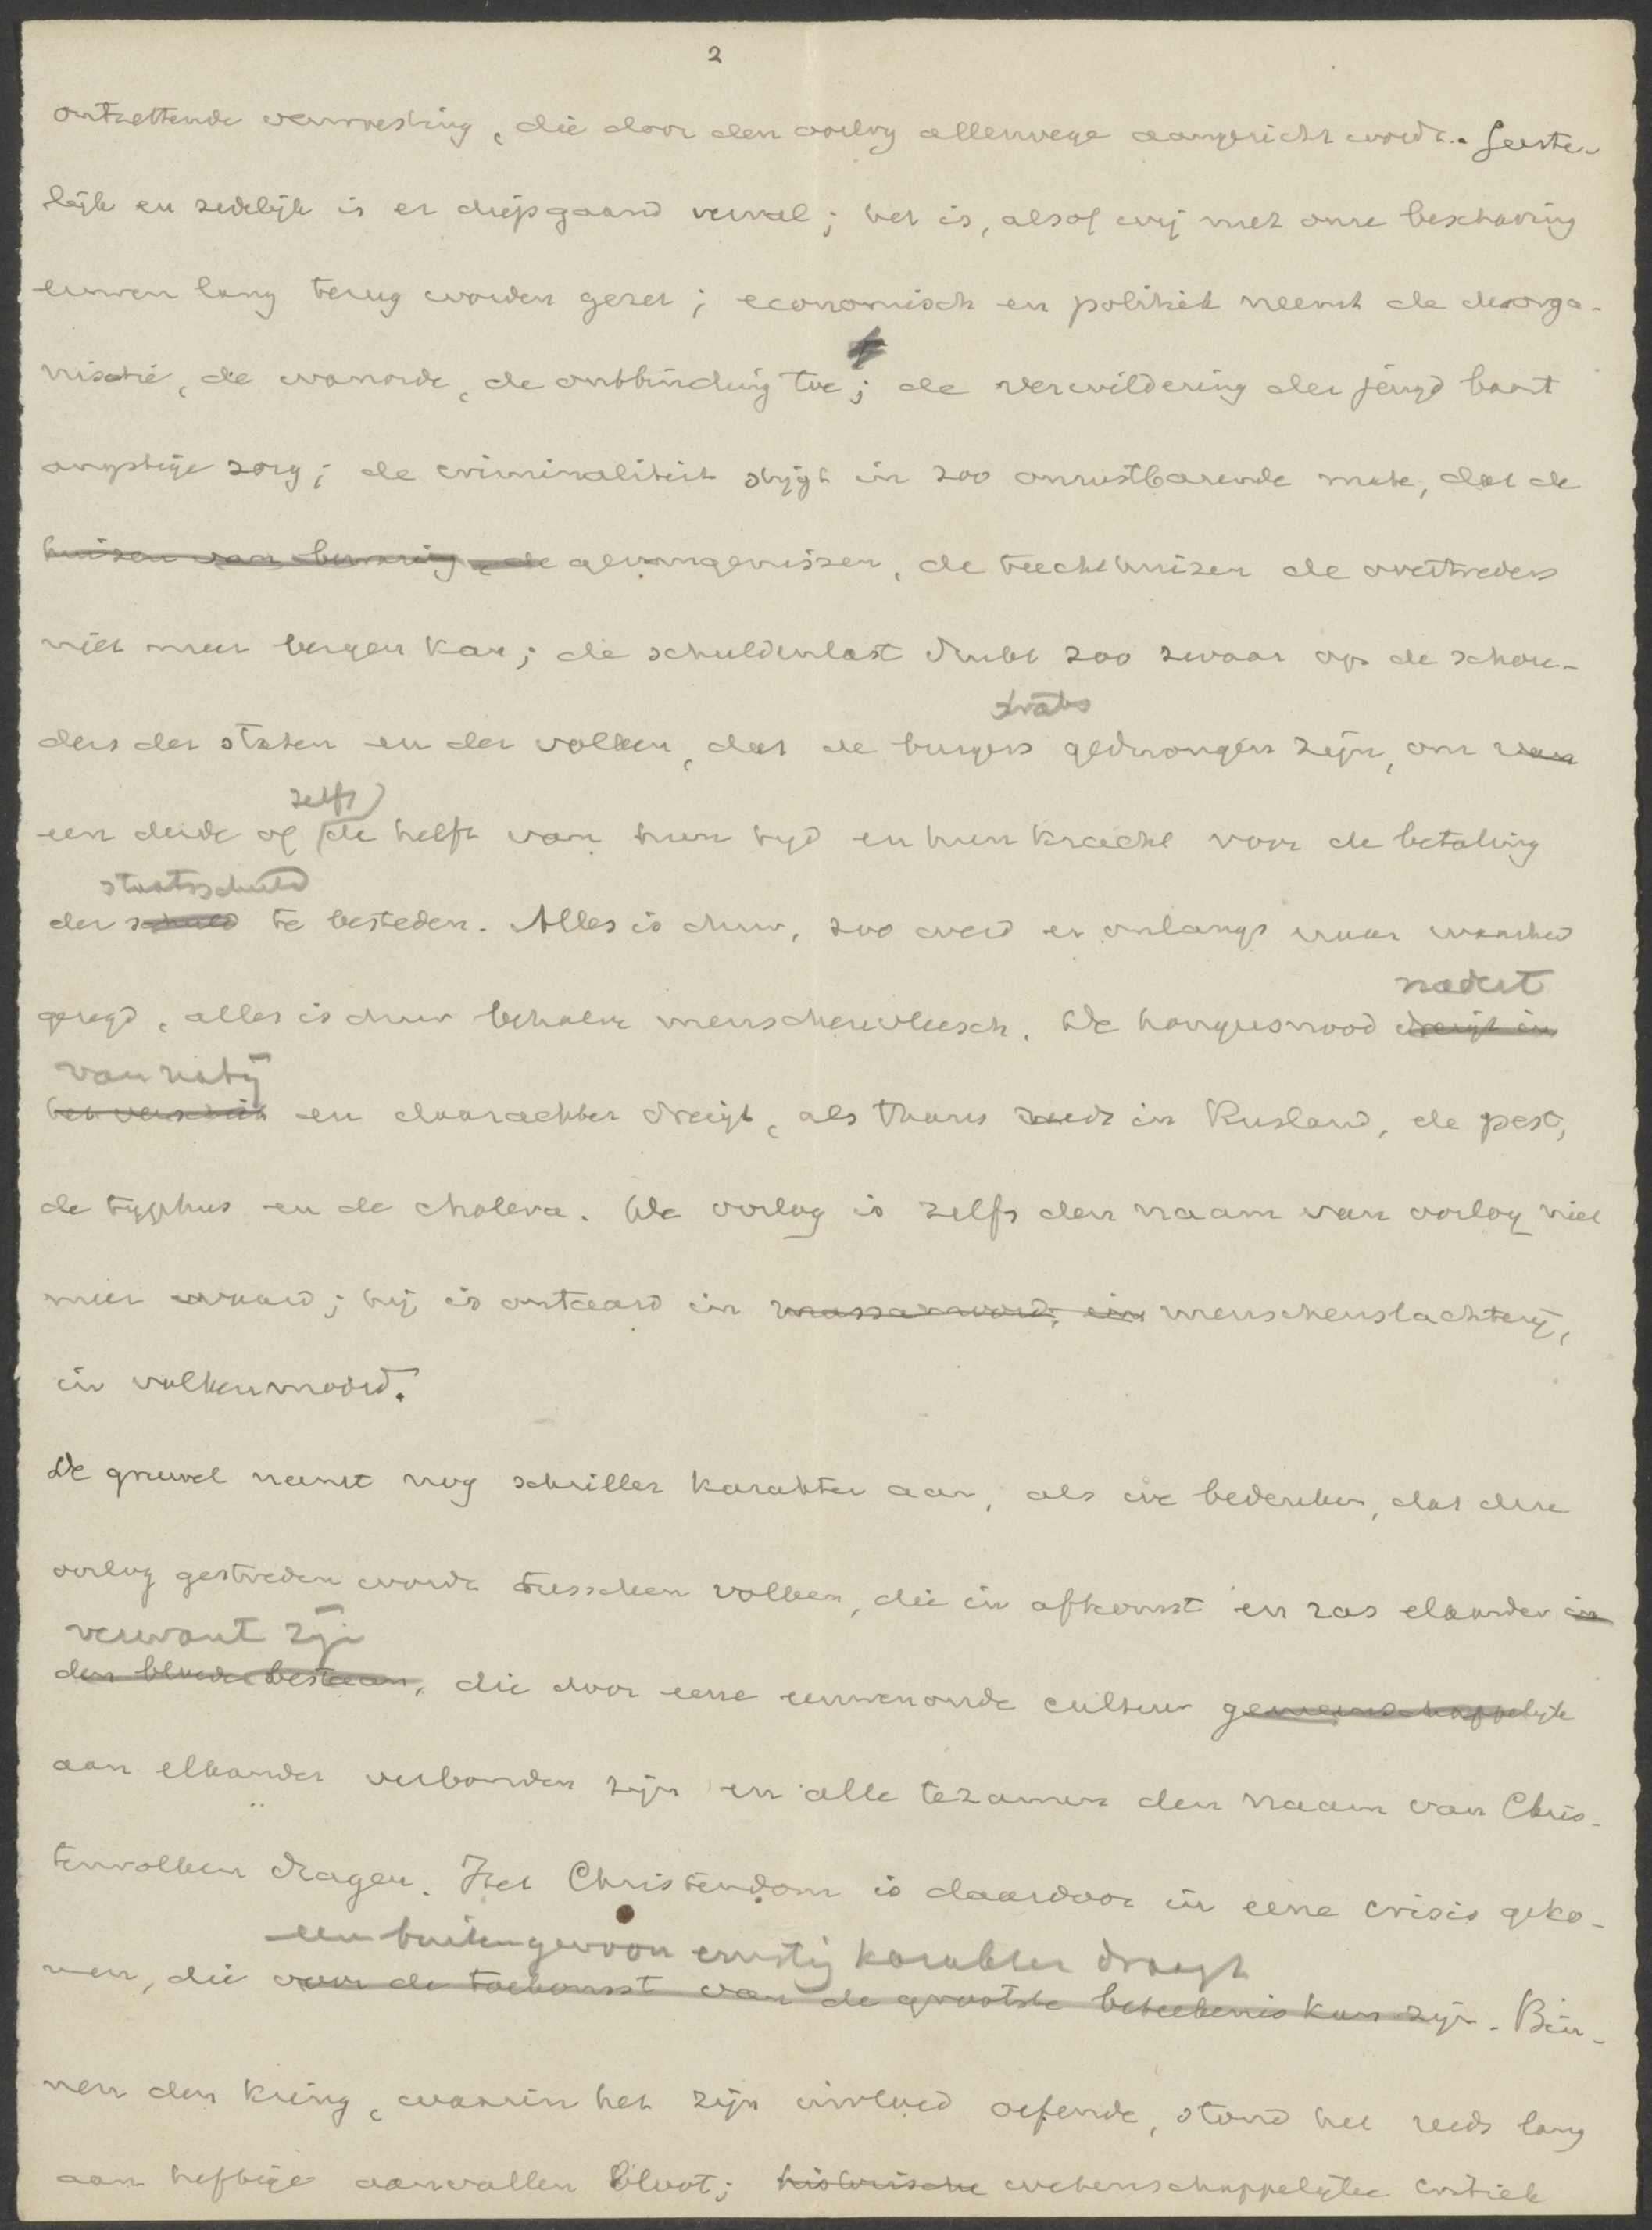 2
ontzettende verwoesting, die door den oorlog allerwege aangericht wordt. Geeste-
lijk en zedelijk is er diepgaand verval; het is, alsof wij met onze beschaving
eeuwen lang terug worden gezet; economisch en politiek neemt de desorga-
nisatie, de wanorde, de ontbinding toe; de verwildering der jeugd baart
angstige zorg; de criminaliteit stijgt in zoo onrustbarende mate, dat de
huizen van bewaring, de gevangenissen, de tuchthuizen de overtreders
niet meer bergen kan; de schuldenlast drukt zoo zwaar op de schou-
straks
ders der staten en der volken, dat de burgers gedwongen zijn, om van
zelfs
een derde of de helft van hun tijd en hun kracht voor de betaling
staatsschuld
der schuld te besteden. Alles is duur, zoo werd er onlangs naar waarheid
nadert
gezegd, alles is duur behalve menschenvleesch. De hongersnood dreigt in
van nabij
het verschiet en daarachter dreigt, als thans reeds in Rusland, de pest,
de typhus en de cholera. De oorlog is zelfs den naam van oorlog niet
meer waard; hij is ontaard in massamoord, in menschenslachterij,
in volkenmoord.
De gruwel neemt nog schriller karakter aan, als we bedenken, dat deze
oorlog gestreden wordt tusschen volken, die in afkomst en ras elkander in
verwant zijn
den bloede bestaan, die door eene eeuwenoude cultuur gemeenschappelijk
aan elkander verbonden zijn en alle tezamen den naam van Chris-
tenvolken dragen. Het Christendom is daardoor in eene crisis geko-
een buitengewoon ernstig karakter draagt
men, die voor de toekomst van de grootste beteekenis kan zijn. Bin-
nen den kring, waarin het zijn invloed oefende, stond het reeds lang
aan heftige aanvallen bloot; historische wetenschappelijke critiek